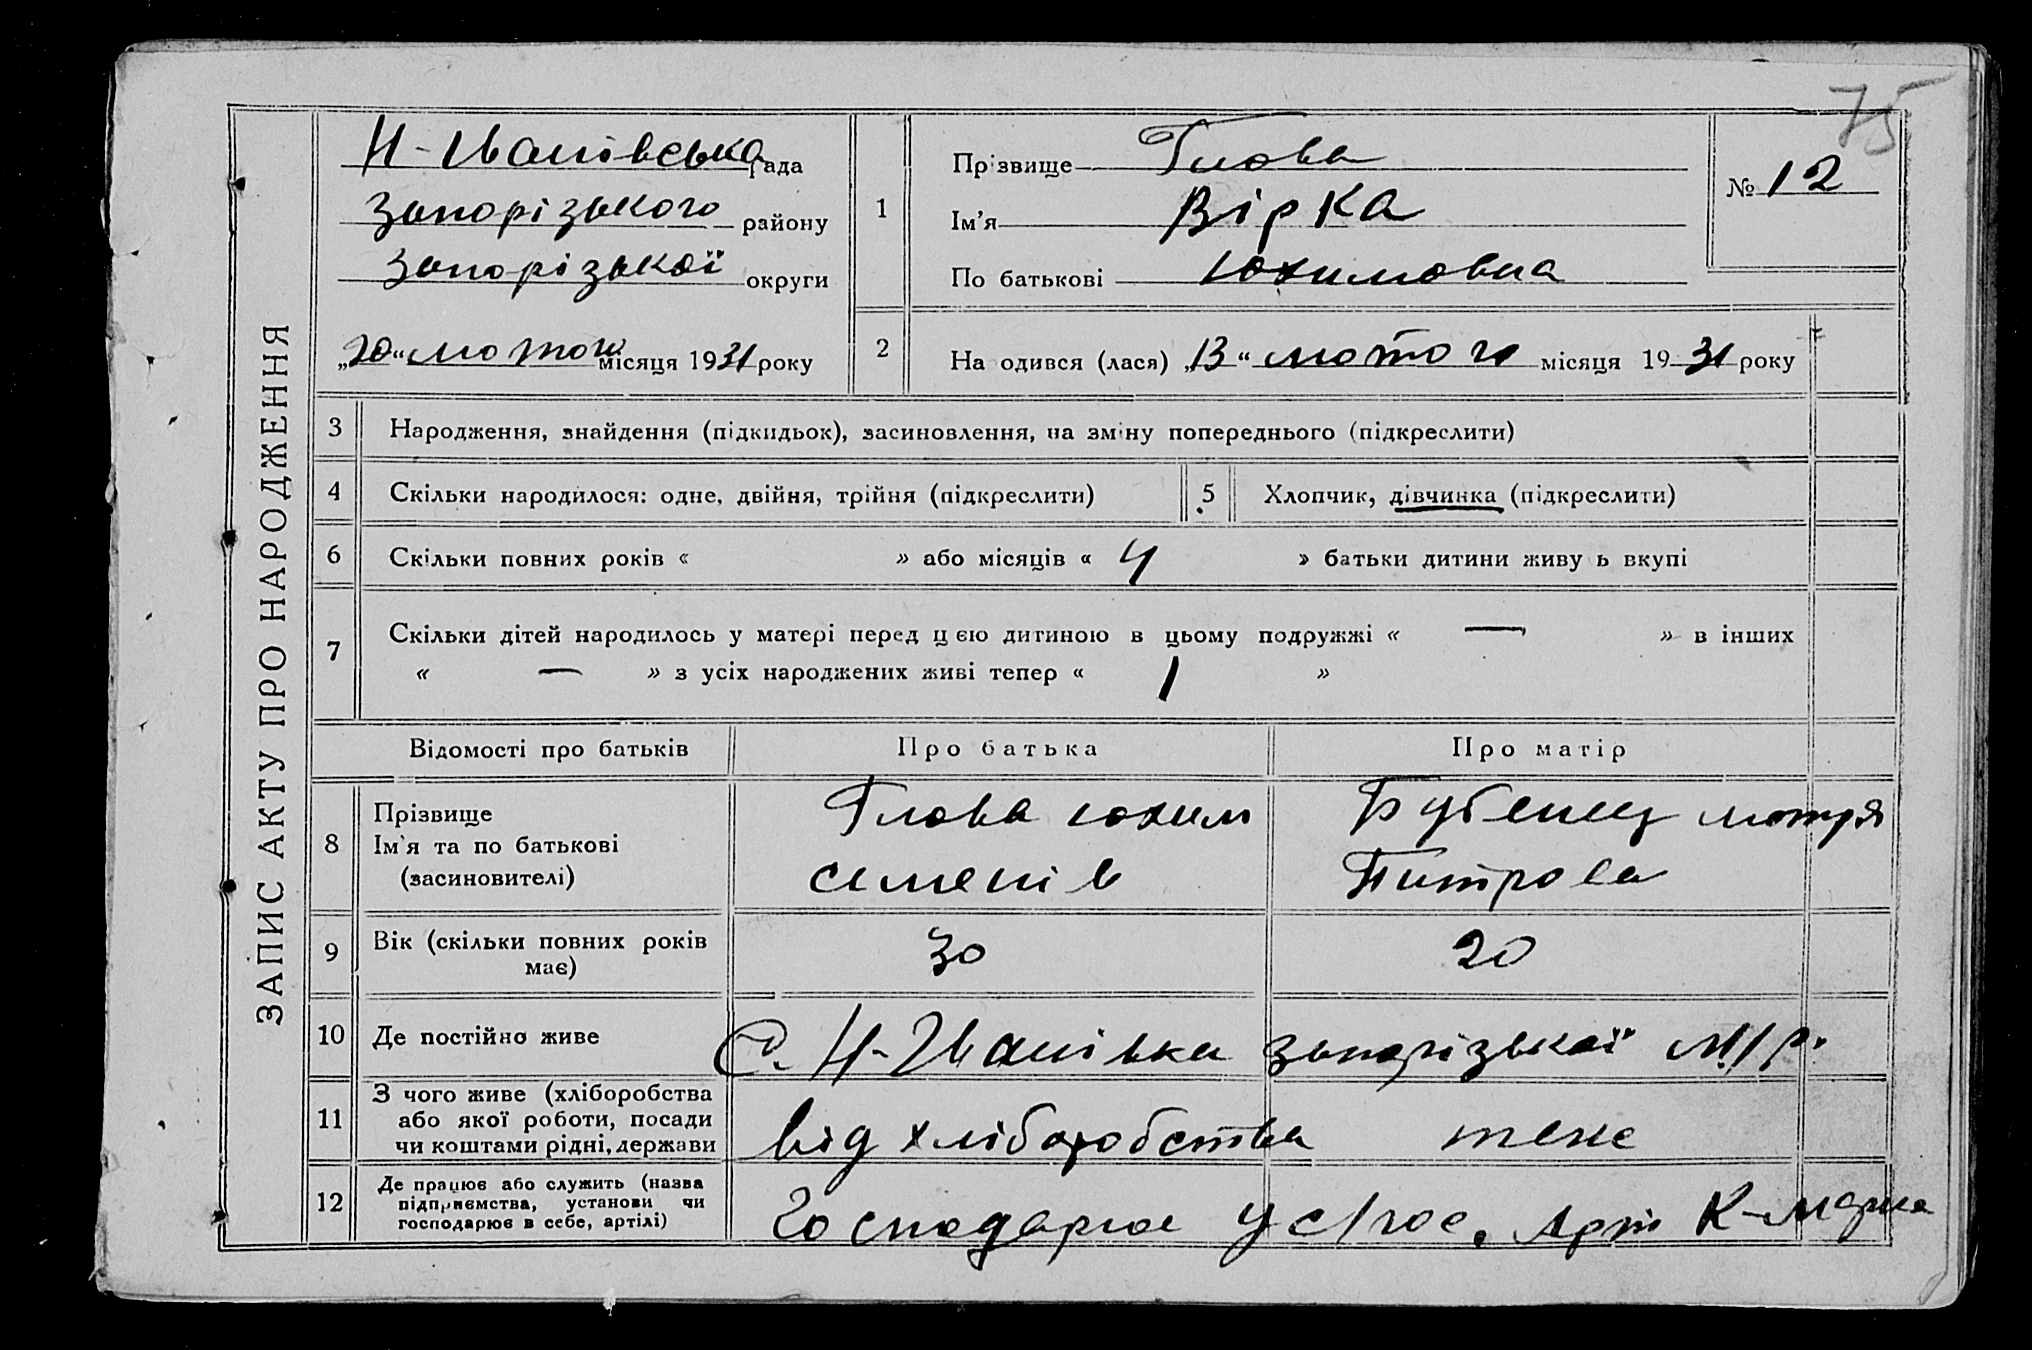 75
ЗАПИС АКТУ ПРО НАРОДЖЕННЯ
Н-Іванівська рада
Запорізького району
Запорізької округи
„20“ лютого місяця 1931 року
1
Прізвище Глова
Ім'я Вірка
По батькові Юхимовна
№ 12
2
На одився (лася) „13“ лютого місяця 1931 року
3 Народження, знайдення (підкидьок), засиновлення, на зміну попереднього (підкреслити)
4 Скільки народилося: одне, двійня, трійня (підкреслити)
5 Хлопчик, дівчинка (підкреслити)
6 Скільки повних років « » або місяців « 4 » батьки дитини живу ь вкупі
7 Скільки дітей народилось у матері перед цією дитиною в цьому подружжі « — » в інших
« — » з усіх народжених живі тепер « 1 »
Відомості про батьків Про батька Про матір
8 Прізвище
Ім'я та по батькові
(засиновителі)
Глова Юхим
Семенів
Бубенец Мотря
Питрова
9 Вік (скільки повних років
має)
30 20
10 Де постійно живе
С. Н-Іванівка Запорізької м/р.
11 З чого живе (хліборобства
або якої роботи, посади
чи коштами рідні, держави
від хліборобства теже
12 Де працює або служить (назва
підприємства, установи чи
господарює в себе, артілі)
Господарює у с/гос. Арт К-Маркса